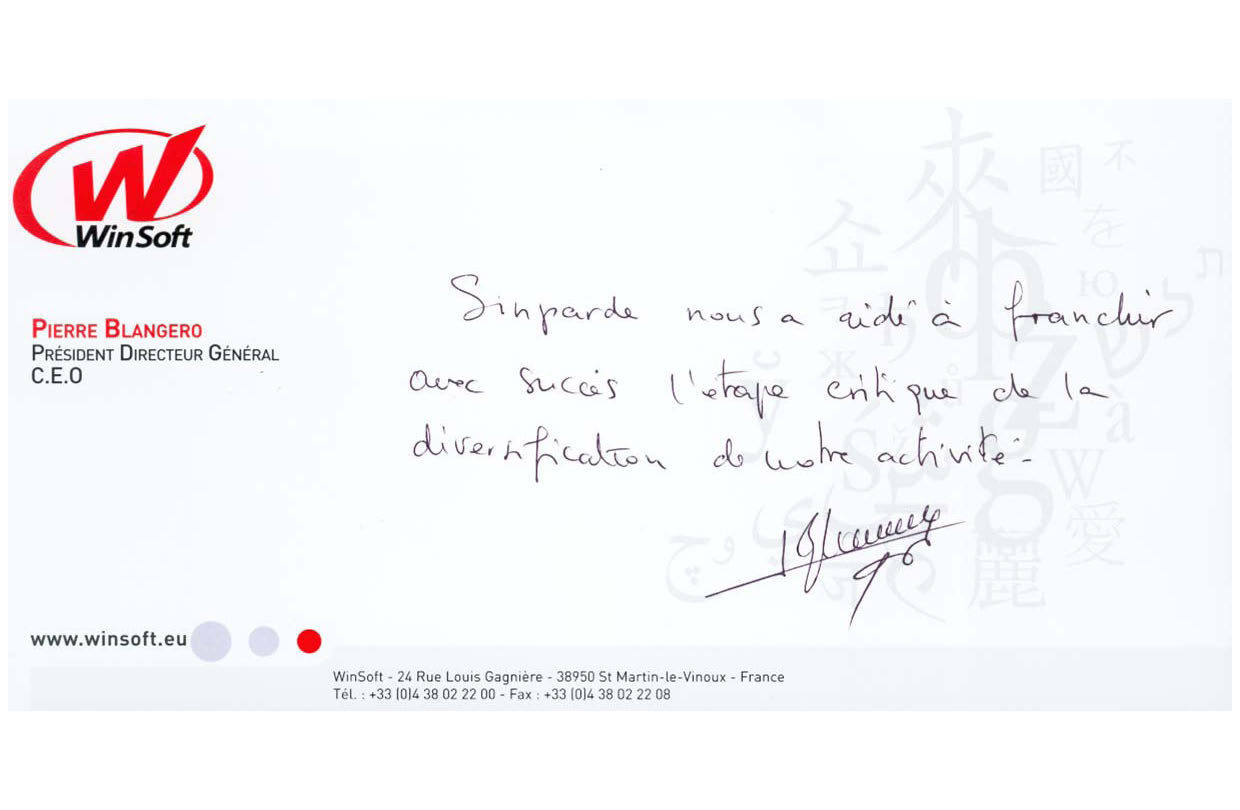 WinSoft
PIERRE BLANGERO
PRÉSIDENT DIRECTEUR GÉNÉRAL
C.E.O
Sinparde nous a aidé à franchir
avec succès l'étape critique de la
diversification de notre activité.
www.winsoft.eu
WinSoft - 24 Rue Louis Gagnière - 38950 St Martin-le-Vinoux - France
Tél. : +33 (0)4 38 02 22 00 - Fax : +33 (0)4 38 02 22 08